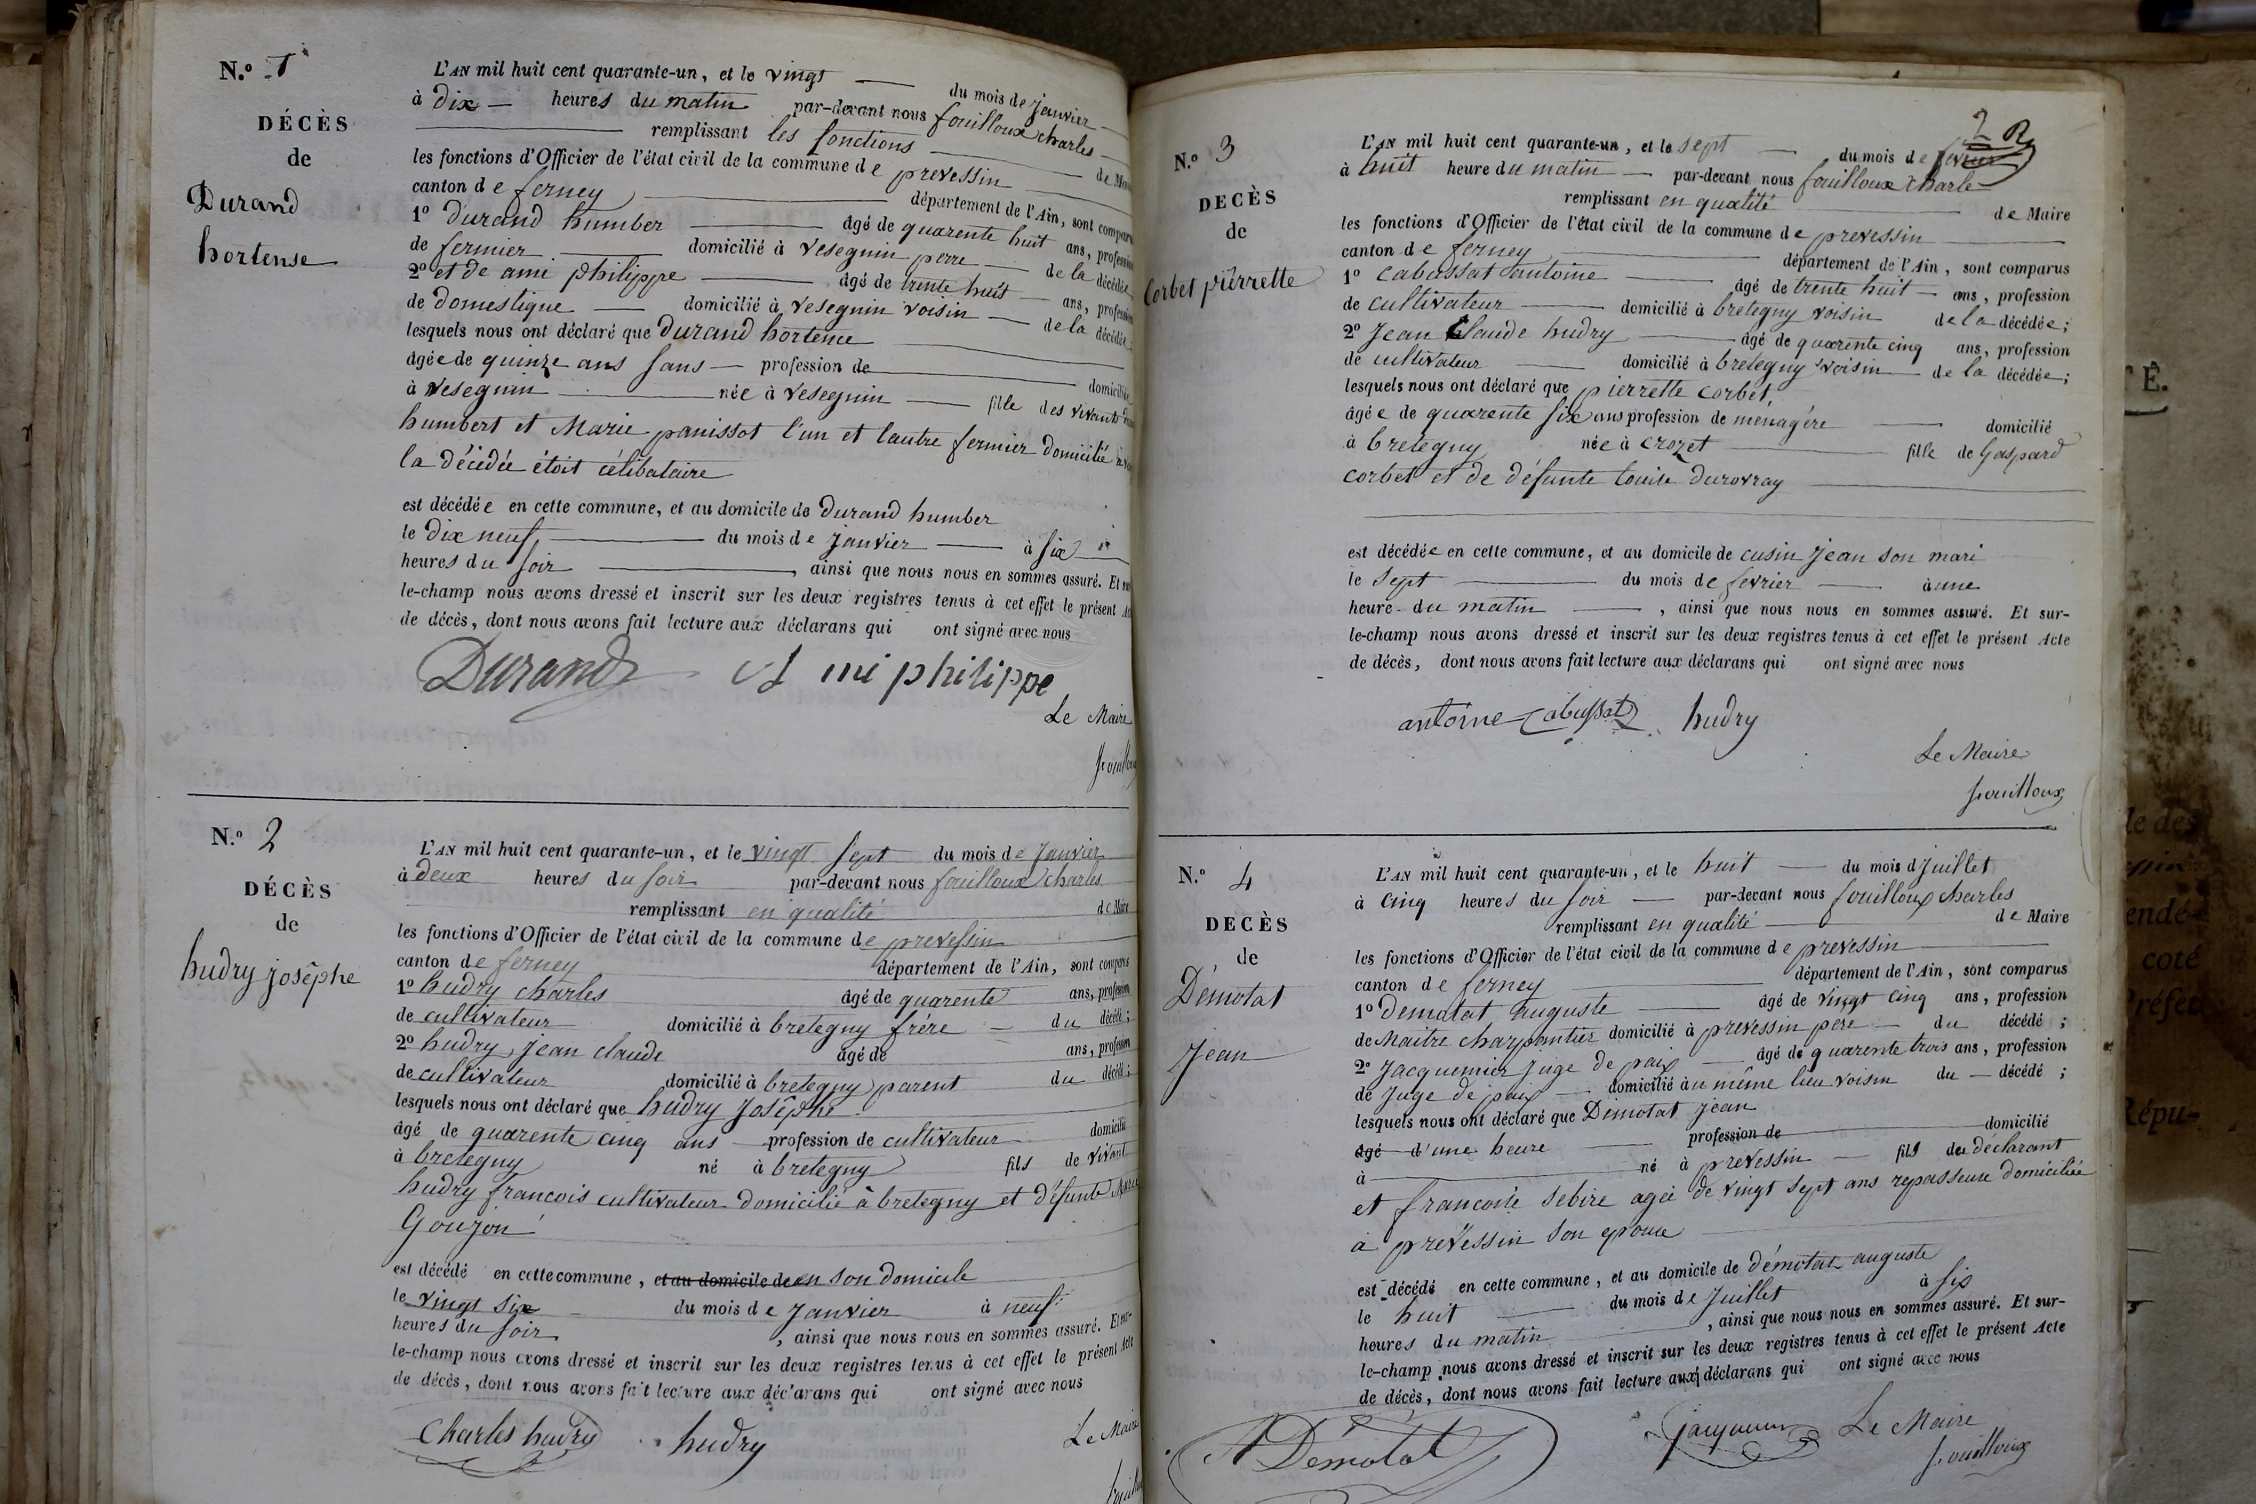 N.º 1
DÉCÈS
de
Durand
hortense
L'AN mil huit cent quarante-un, et le vingt du mois de janvier
à dix heures du matin par-devant nous fouilloux charles
remplissant les fonctions de
les fonctions d'Officier de l'état civil de la commune de prevessin
canton de ferney département de l'Ain, sont
1º durand humber âgé de quarente huit ans,
de fermier domicilié à vesegnin perre de la décédée
2º et de ami philippe âgé de trente huit ans,
de domestique domicilié à vesegnin voisin de la décédée
lesquels nous ont déclaré que durand hortense
âgée de quinze ans sans profession de
à vesegnin née à vesegnin fille des vivants
humbert et Marie panissot l'un et lautre fermier domicilié
la décédée étoit célibataire
est décédée en cette commune, et au domicile de durand humber
le dix neuf du mois de janvier à six
heures du soir, ainsi que nous nous en sommes assuré. Et
le-champ nous avons dressé et inscrit sur les deux registres tenus à cet effet le présent
de décès, dont nous avons fait lecture aux déclarans qui ont signé avec nous
Durand Ami philippe
Le Maire
N.º 2
DÉCÈS
de
hudry josêphe
L'AN mil huit cent quarante-un, et le vingt sept du mois de janvier
à deux heures du soir par-devant nous fouilloux charles
remplissant en qualité de Maire
les fonctions d'Officier de l'état civil de la commune de prevessin
canton de ferney département de l'Ain, sont comparus
1º hudry charles âgé de quarente ans, profession
de cultivateur domicilié à bretegny frére du décédé;
2º hudry, jean claude âgé de ans, profession
de cultivateur domicilié à bretegny parent du décédé;
lesquels nous ont déclaré que hudry josêphe
âgé de quarente cinq ans profession de cultivateur domicilié
à bretegny né à bretegny fils de vivant
hudry francois cultivateur domicilié à bretegny et défunte
Goujon
est décédé en cette commune, et au domicile de en son domicile
le vingt six du mois de janvier à neuf
heures du soir, ainsi que nous nous en sommes assuré. Et sur-
le-champ nous avons dressé et inscrit sur les deux registres tenus à cet effet le présent Acte
de décès, dont nous avons fait lecture aux déclarans qui ont signé avec nous
Charles hudry hudry
Le Maire
2
N.º 3
DECÈS
de
Corbet piêrrette
L'AN mil huit cent quarante-un, et le sept du mois de fevrier
à huit heure du matin par-devant nous fouilloux charle
remplissant en qualité de Maire
les fonctions d'Officier de l'état civil de la commune de prevessin
canton de ferney département de l'Ain, sont comparus
1º Cabussat antoine âgé de trente huit ans, profession
de cultivateur domicilié à bretegny voisin de la décédée;
2º Jean Claude hudry âgé de quarente cinq ans, profession
de cultivateur domicilié à bretegny voisin de la décédée;
lesquels nous ont déclaré que pierrette corbet,
âgée de quarente six ans profession de ménagére domicilié
à bretegny née à crozet fille de Gaspard
corbet et de défunte Louise durovray
est décédée en cette commune, et au domicile de cusin jean son mari
le sept du mois de fevrier à une
heure du matin, ainsi que nous nous en sommes assuré. Et sur-
le-champ nous avons dressé et inscrit sur les deux registres tenus à cet effet le présent Acte
de décès, dont nous avons fait lecture aux déclarans qui ont signé avec nous
antoine Cabussat hudry
Le Maire
fouilloux
N.º 4
DECÈS
de
Démotat
Jean
L'AN mil huit cent quarante-un, et le huit du mois d juillet
à cinq heures du soir par-devant nous fouilloux charles
remplissant en qualité de Maire
les fonctions d'Officier de l'état civil de la commune de prevessin
canton de ferney département de l'Ain, sont comparus
1º demotat auguste âgé de vingt cinq ans, profession
de Maitre charpentier domicilié à prevessin pere du décédé;
2º Jacquemier juge de paix âgé de quarente trois ans, profession
de Juge de paix domicilié au même lieu voisin du décédé;
lesquels nous ont déclaré que Démotat jean
âgé d'une heure profession de domicilié
à né à prevessin fils du déclarant
et francoise sebire ageé de vingt sept ans repasseuse domiciliée
à prevessin son epouse
est décédé en cette commune, et au domicile de démotat auguste
le huit du mois de juillet à six
heures du matin, ainsi que nous nous en sommes assuré. Et sur-
le-champ nous avons dressé et inscrit sur les deux registres tenus à cet effet le présent Acte
de décès, dont nous avons fait lecture aux déclarans qui ont signé avec nous
A Démotat Le Maire
fouilloux